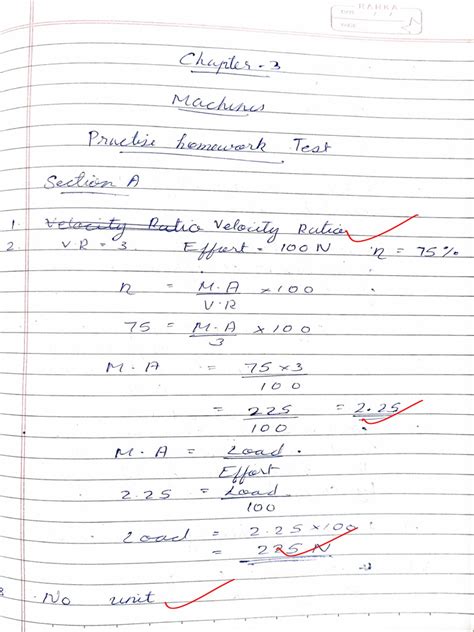 Chapter - 3
Machines
Practise homework Test
Section A
1. Velocity Ratio Velocity Ratio
2. V.R = 3 Effort = 100 N η = 75%
η = M.A × 100
V.R
75 = M.A × 100
3
M.A = 75 × 3
100
= 225 = 2.25
100
M.A = Load
Effort
2.25 = Load
100
Load = 2.25 × 100
= 225 N
3 No unit